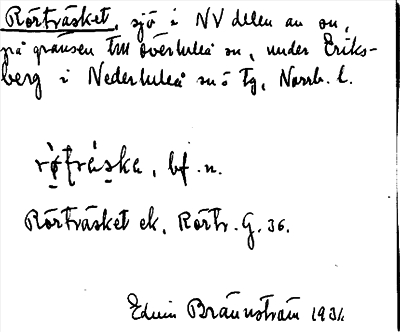 Rörträsket, sjö i NV delen av sn,
på gränsen till Överluleå sn, under Eriks-
berg i Nederluleå sn o tg, Norrb. l.
bf. n.
Rörträsket ek, Rörtr. G. 36.
Edvin Brännström 1931.